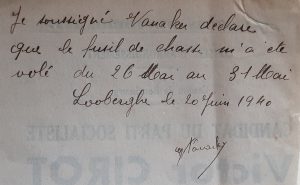 Je soussigné Vanaken déclare
que le fusil de chasse m'a été
volé du 26 Mai au 31 Mai
Looberghe le 20 Juin 1940
CANDIDAT DU PARTI SOCIALISTE
Victor CIROT